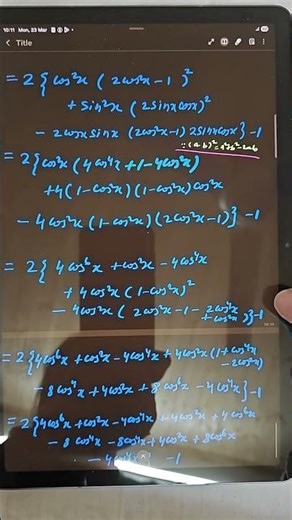 10:11 Mon, 23 Mar
Title
= 2 { cos²x ( 2cos²x - 1 )²
+ sin²x ( 2sinx cosx )²
- 2cosx sinx (2cos²x-1) 2sinx cosx } - 1
∵ (a-b)² = a²+b²-2ab
= 2 { cos²x ( 4cos⁴x + 1 - 4cos²x )
+ 4 ( 1-cos²x ) ( 1-cos²x ) cos²x
- 4cos²x ( 1-cos²x ) ( 2cos²x-1 ) } - 1
= 2 { 4cos⁶x + cos²x - 4cos⁴x
+ 4cos²x ( 1-cos²x )²
- 4cos²x ( 2cos²x - 1 - 2cos⁴x + cos²x ) } - 1
= 2 { 4cos⁶x + cos²x - 4cos⁴x + 4cos²x ( 1 + cos⁴x - 2cos²x )
- 8cos⁴x + 4cos²x + 8cos⁶x - 4cos⁴x } - 1
= 2 { 4cos⁶x + cos²x - 4cos⁴x + 4cos²x + 4cos⁶x
- 8cos⁴x - 8cos⁴x + 4cos²x + 8cos⁶x
- 4cos⁴x - 1